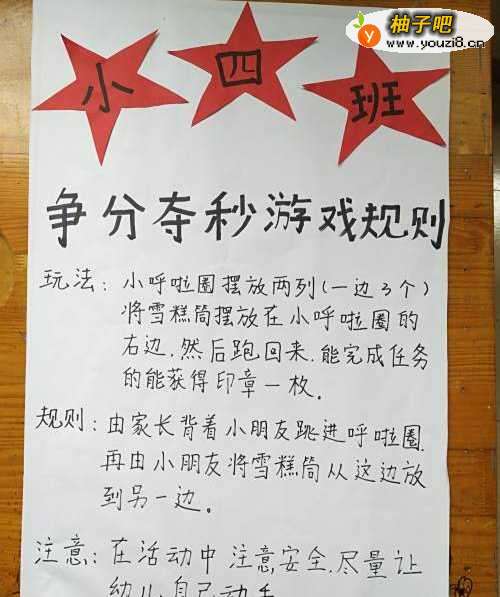 柚子吧
www.youzi8.cn
小四班
争分夺秒游戏规则
玩法：小呼啦圈摆放两列(一边3个)
将雪糕筒摆放在小呼啦圈的
右边.然后跑回来.能完成任务
的能获得印章一枚.
规则：由家长背着小朋友跳进呼啦圈.
再由小朋友将雪糕筒从这边放
到另一边。
注意：在活动中注意安全.尽量让
幼儿自己动手